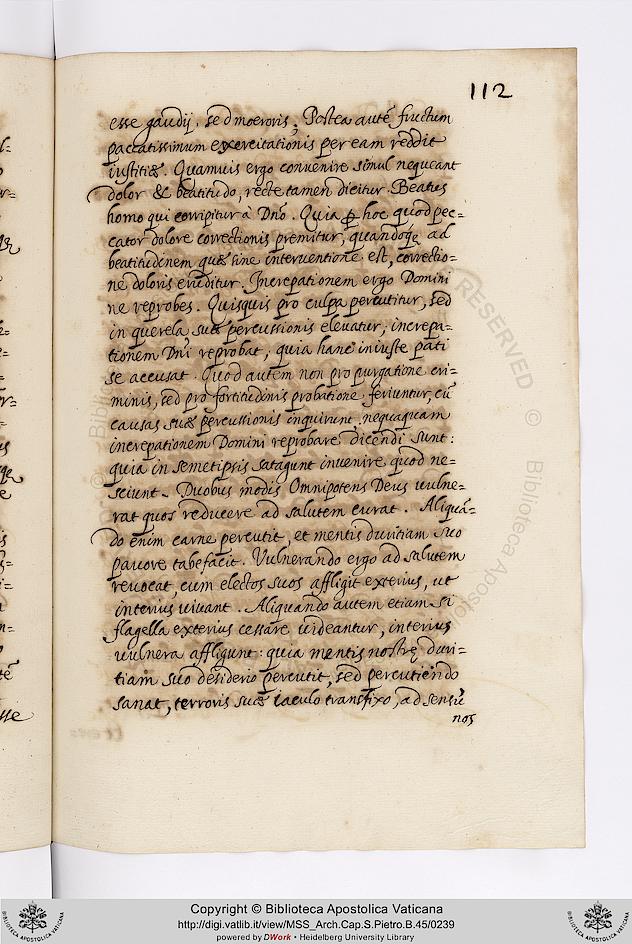 112
esse gaudij, sed moeroris; Postea auté fructum
paccatissimum exercitationis per eam reddit
iustitiæ. Quamuis ergo convenire simul nequeant
dolor & beatitudo, recte tamen dicitur. Beatus
homo qui corripitur à Dno. Quia ꝑ hoc quod pec=
cator dolore correctionis premitur, quandoqꝫ ad
beatitudinem quæ sine interventione est, correctio=
ne doloris eruditur. Increpationem ergo Domini
ne reprobes. Quisquis pro culpa percutitur, sed
in querela suæ percussionis elevatur, increpa=
tionem Dni reprobat, quia hanc iniuste pati
se accusat. Quod autem non pro purgatione cri=
minis, sed pro fortitudinis probatione feriuntur, cū
causas suæ percussionis inquirunt nequaquam
increpationem Domini reprobare dicendi sunt:
quia in semetipsis satagunt invenire quod ne=
sciunt. Duobus modis Omnipotens Deus vulne=
rat quos reducere ad salutem curat. Aliquā=
do enim carne percutit, et mentis duritiam suo
pavore tabefacit. Vulnerando ergo ad salutem
revocat, cum electos suos affligit exterius, ut
interius vivant. Aliquando autem etiam si
flagella exterius cessare videantur, interius
vulnera affligunt: quia mentis nostrę duri=
tiam suo desiderio percutit, sed percutiendo
sanat, terroris suæ iaculo transfixo, ad sensū
nos
RESERVED © Biblioteca Apostolica
Copyright © Biblioteca Apostolica Vaticana
http://digi.vatlib.it/view/MSS_Arch.Cap.S.Pietro.B.45/0239
powered by DWork • Heidelberg University Library